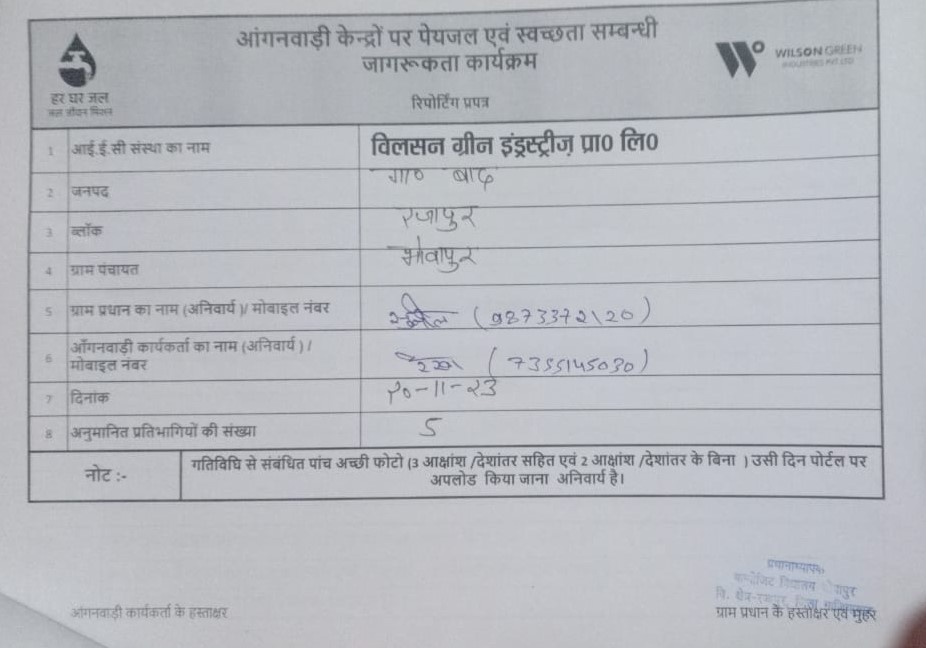 आंगनवाड़ी केन्द्रों पर पेयजल एवं स्वच्छता सम्बन्धी
जागरूकता कार्यक्रम
रिपोर्टिंग प्रपत्र
हर घर जल
जल जीवन मिशन
WILSON GREEN
INDUSTRIES PVT LTD
1 आई.ई.सी संस्था का नाम विलसन ग्रीन इंड्रस्ट्रीज़ प्रा0 लि0
2 जनपद गा0 बाद
3 ब्लॉक रजापुर
4 ग्राम पंचायत भोवापुर
5 ग्राम प्रधान का नाम (अनिवार्य )/ मोबाइल नंबर (9873372120)
6 आँगनवाड़ी कार्यकर्ता का नाम (अनिवार्य ) /
मोबाइल नंबर रेखा (7355145030)
7 दिनांक 20-11-23
8 अनुमानित प्रतिभागियों की संख्या 5
नोट :- गतिविधि से संबंधित पांच अच्छी फोटो (3 आक्षांश /देशांतर सहित एवं 2 आक्षांश /देशांतर के बिना ) उसी दिन पोर्टल पर
अपलोड किया जाना अनिवार्य है।
प्रधानाध्यापक
कम्पोजिट विद्यालय
वि. क्षेत्र-रजापुर,
आंगनवाड़ी कार्यकर्ता के हस्ताक्षर
ग्राम प्रधान के हस्ताक्षर एवं मुहर